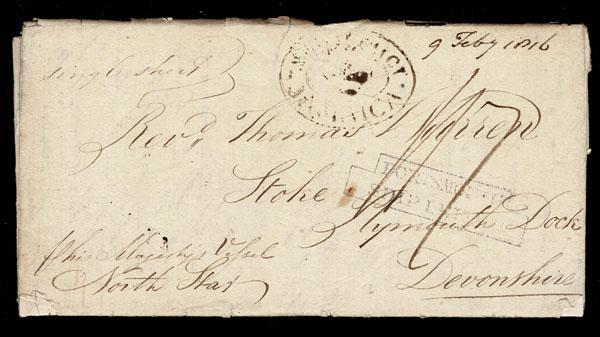 9 Feby 1816
single sheet
Revd. Thomas Warren
Stoke
Plymouth Dock
Devonshire
PORTSMOUTH
SHIP LETTER
his Majestys Vessel
North Star